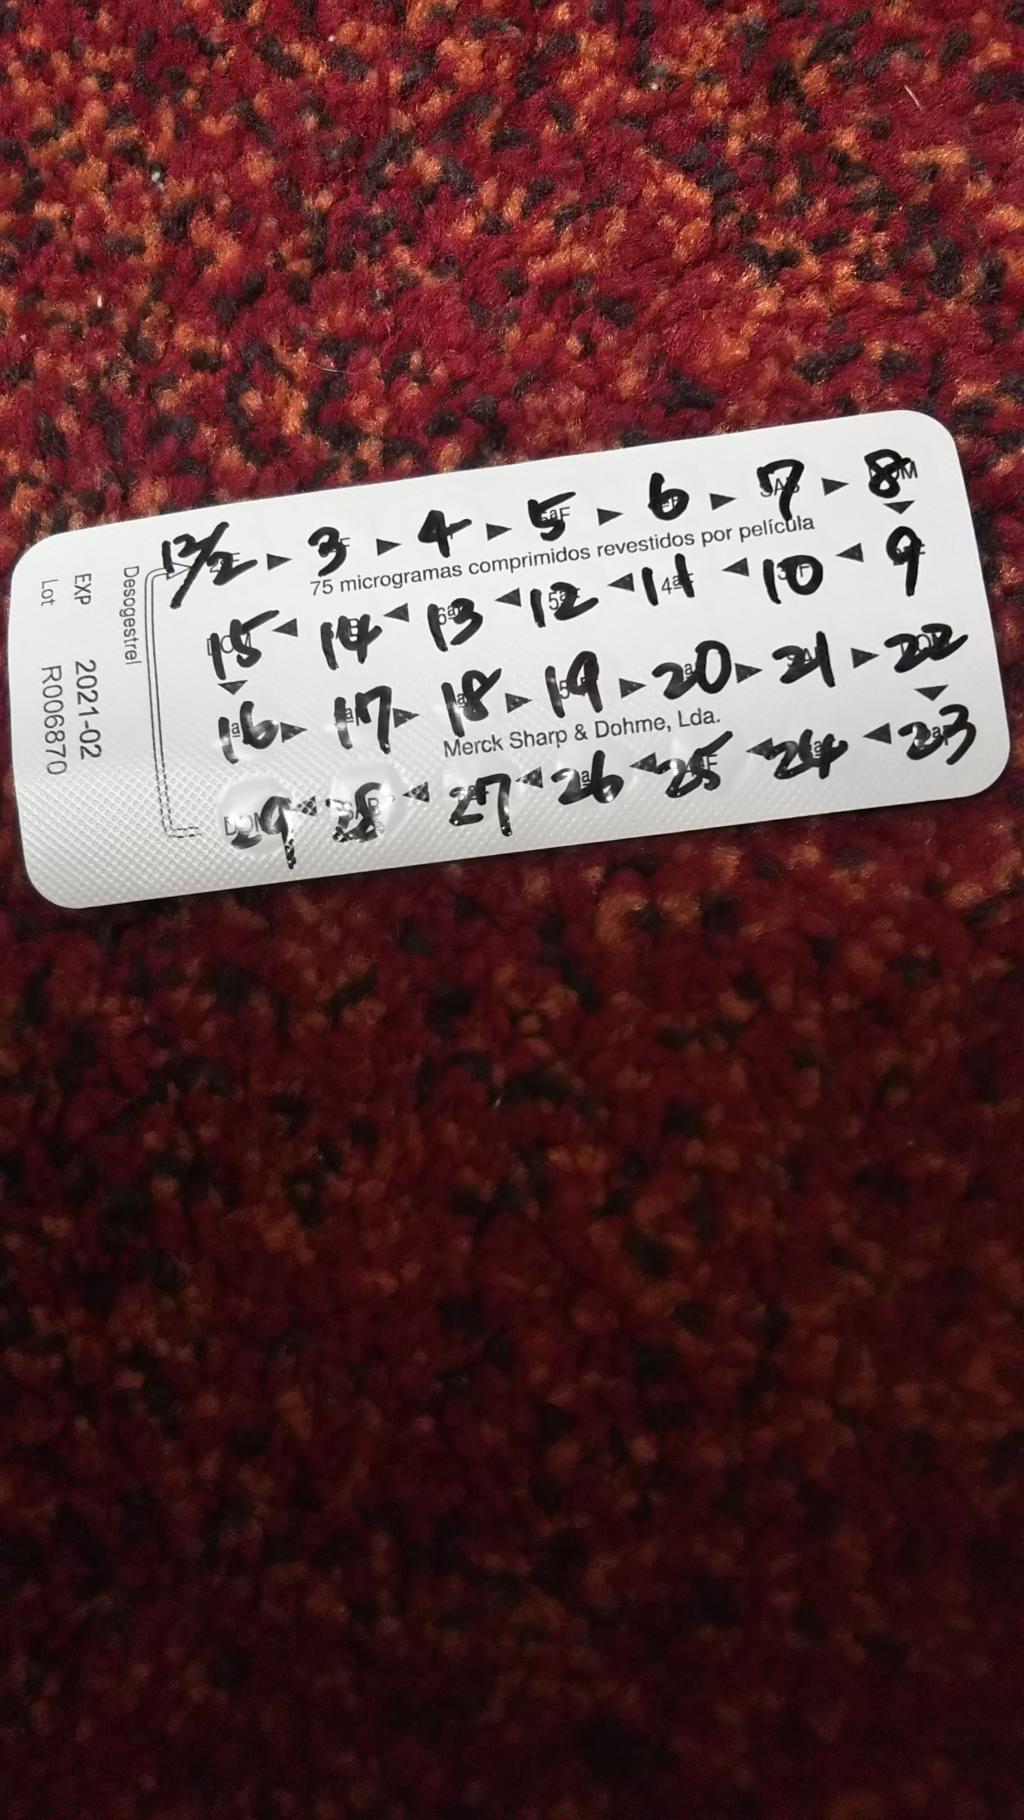 12/2 ► 3 ► 4 ► 5 ► 6 ► 7 ► 8
75 microgramas comprimidos revestidos por película
15 ◄ 14 ◄ 13 ◄ 12 ◄ 11 ◄ 10 ◄ 9
16 ► 17 ► 18 ► 19 ► 20 ► 21 ► 22
Merck Sharp & Dohme, Lda.
29 ◄ 28 ◄ 27 ◄ 26 ◄ 25 ◄ 24 ◄ 23
Desogestrel
EXP 2021-02
Lot R006870